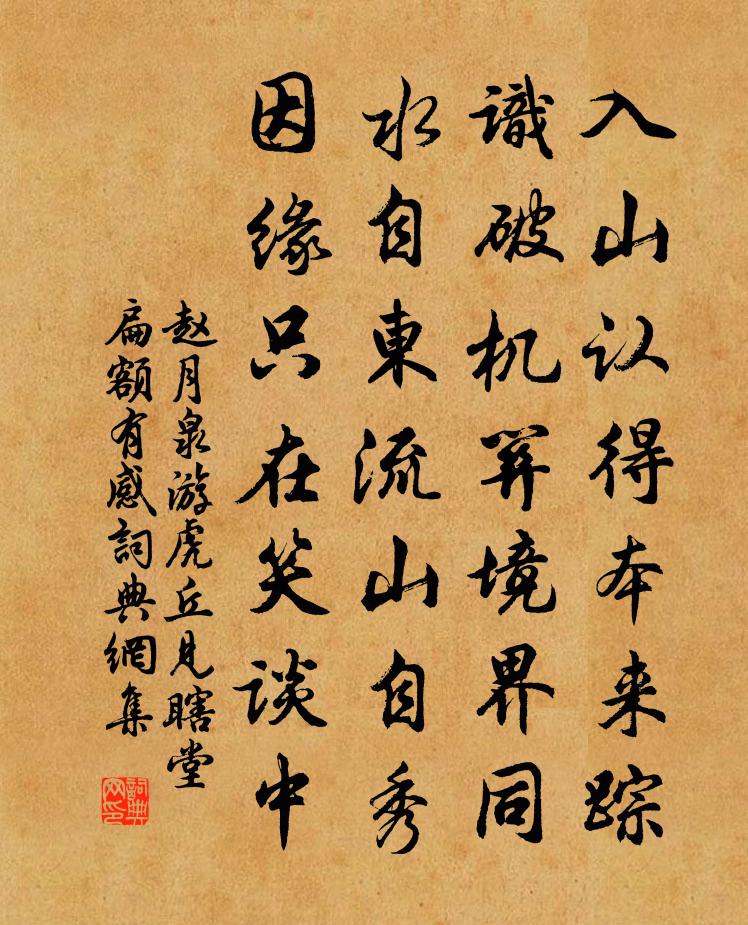 入山认得本来踪
識破机关境界同
水自東流山自秀
因缘只在笑谈中
赵月泉游虎丘見瞎堂
扁額有感詞典網集
詞典网印